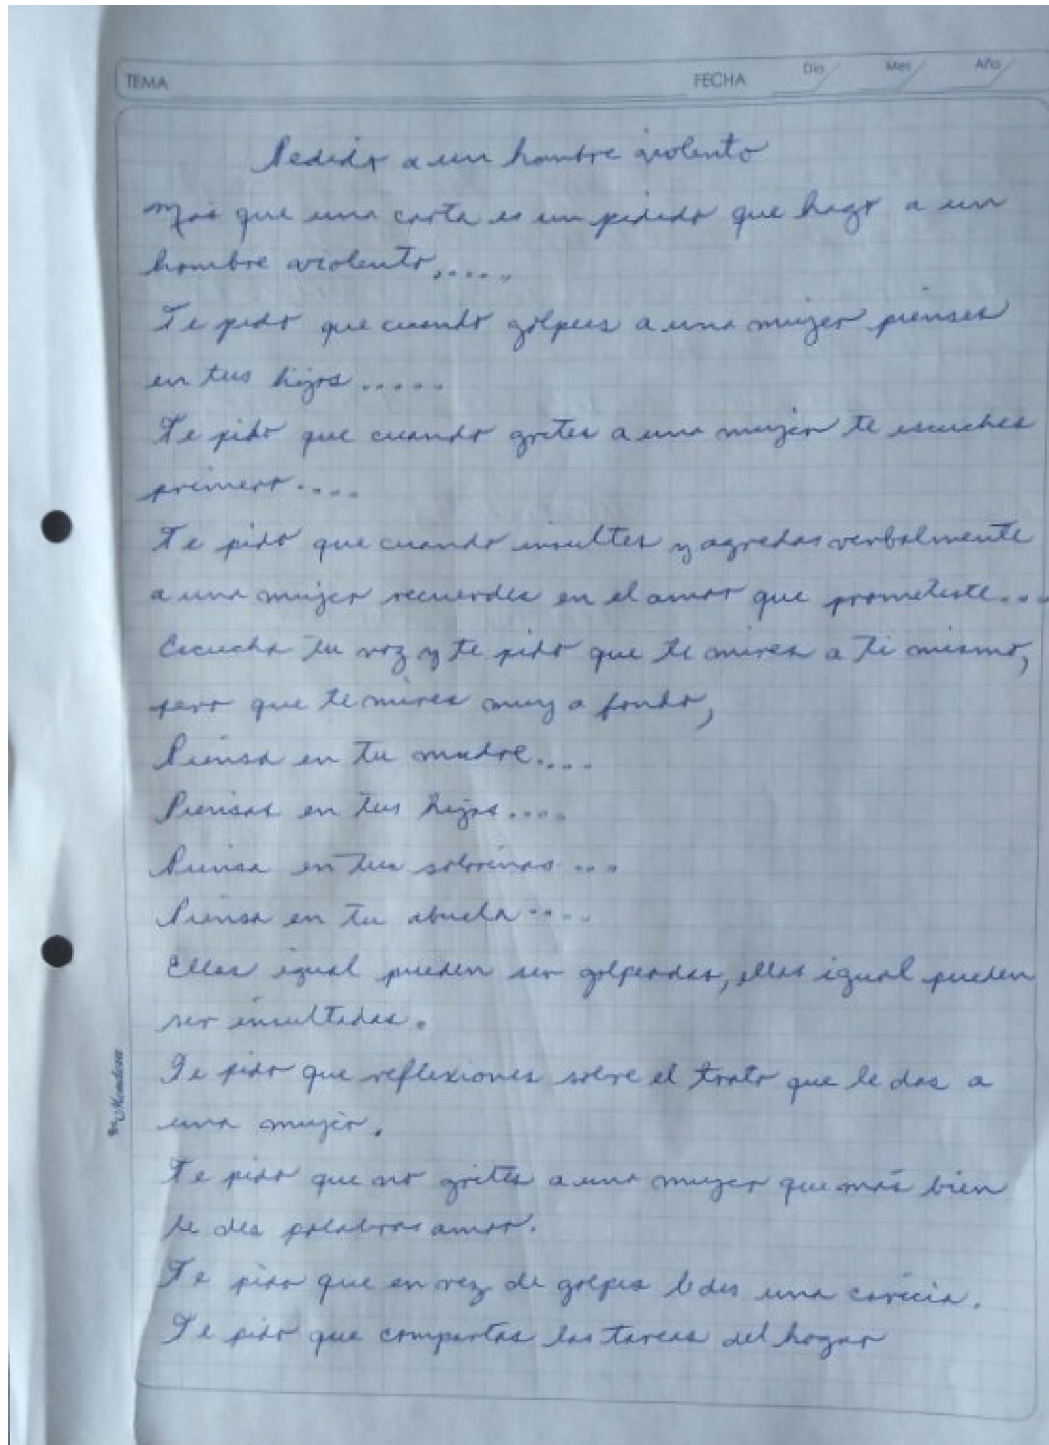 TEMA FECHA Día Mes Año
Pedido a un hombre violento
Más que una carta es un pedido que hago a un
hombre violento.....
Te pido que cuando golpees a una mujer pienses
en tus hijos.....
Te pido que cuando grites a una mujer te escuches
primero....
Te pido que cuando insultes y agredas verbalmente
a una mujer recuerdes en el amor que prometiste...
Escucha tu voz y te pido que te mires a ti mismo,
pero que te mires muy a fondo,
Piensa en tu madre....
Piensas en tus hijas....
Piensa en tus sobrinas...
Piensa en tu abuela....
Ellas igual pueden ser golpeadas, ellas igual pueden
ser insultadas.
Te pido que reflexiones sobre el trato que le das a
una mujer.
Te pido que no grites a una mujer que más bien
le des palabras amor.
Te pido que en vez de golpes le des una caricia.
Te pido que compartas las tareas del hogar